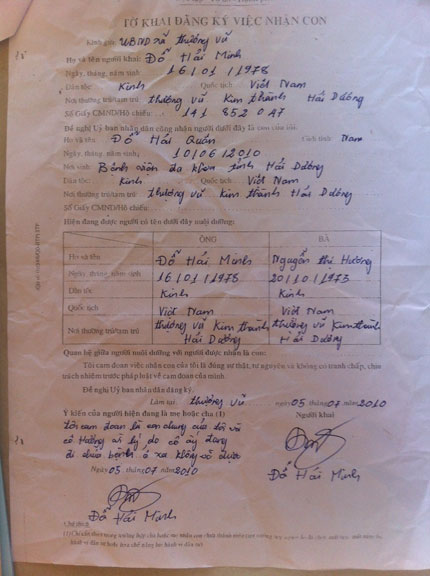 TỜ KHAI ĐĂNG KÝ VIỆC NHẬN CON
Kính gửi: UBND xã thượng vũ
Họ và tên người khai: Đỗ Hải Minh
Ngày, tháng, năm sinh: 16/01/1978
Dân tộc: Kinh Quốc tịch: Việt Nam
Nơi thường trú/tạm trú: thượng vũ Kim thành Hải Dương
Số Giấy CMND/Hộ chiếu: 141 852 047
Đề nghị Uỷ ban nhân dân công nhận người dưới đây là con của tôi.
Họ và tên: Đỗ Hải Quân Giới tính: Nam
Ngày, tháng, năm sinh: 10/06/2010
Nơi sinh: Bệnh viện đa khoa tỉnh Hải Dương
Dân tộc: Kinh Quốc tịch: Việt Nam
Nơi thường trú/tạm trú: thượng vũ Kim thành Hải Dương
Số Giấy CMND/Hộ chiếu:
Hiện đang được người có tên dưới đây nuôi dưỡng:
ÔNG BÀ
Họ và tên Đỗ Hải Minh Nguyễn thị Hương
Ngày, tháng, năm sinh 16/01/1978 20/10/1973
Dân tộc Kinh Kinh
Quốc tịch Việt Nam Việt Nam
Nơi thường trú/tạm trú thượng vũ Kim thành Hải Dương thượng vũ Kim thành Hải Dương
Quan hệ giữa người nuôi dưỡng với người được nhận là con:
Tôi cam đoan việc nhận con của tôi là đúng sự thật, tự nguyện và không có tranh chấp, chịu
trách nhiệm trước pháp luật về cam đoan của mình.
Đề nghị Uỷ ban nhân dân đăng ký.
Làm tại: thượng vũ ngày 05 tháng 07 năm 2010
Ý kiến của người hiện đang là mẹ hoặc cha (1) Người khai
tôi cam đoan là con chung của tôi và
cô Hương vì lý do cô ấy đang
đi chữa bệnh ở xa không về được
Ngày 05 tháng 07 năm 2010
Đỗ Hải Minh
Đỗ Hải Minh
Chú thích: